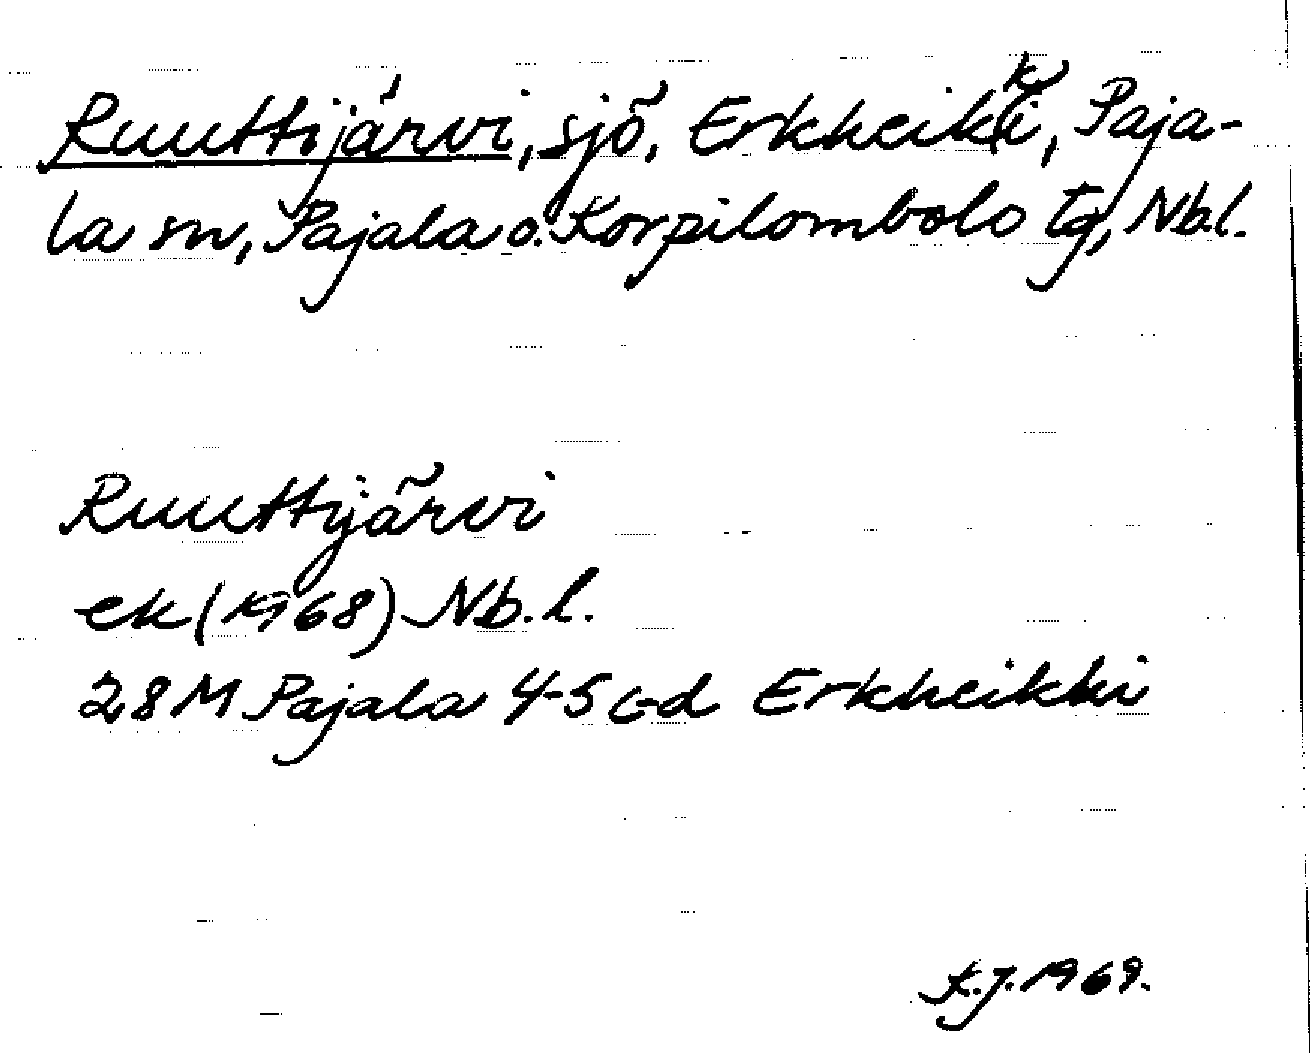 Ruuttijärvi, sjö, Erkheikki, Paja-
la sn, Pajala o. Korpilombolo tg, Nb.l.
Ruuttijärvi
ek (1968) Nb.l.
28M Pajala 4-5 c-d Erkheikki
K.J. 1969.